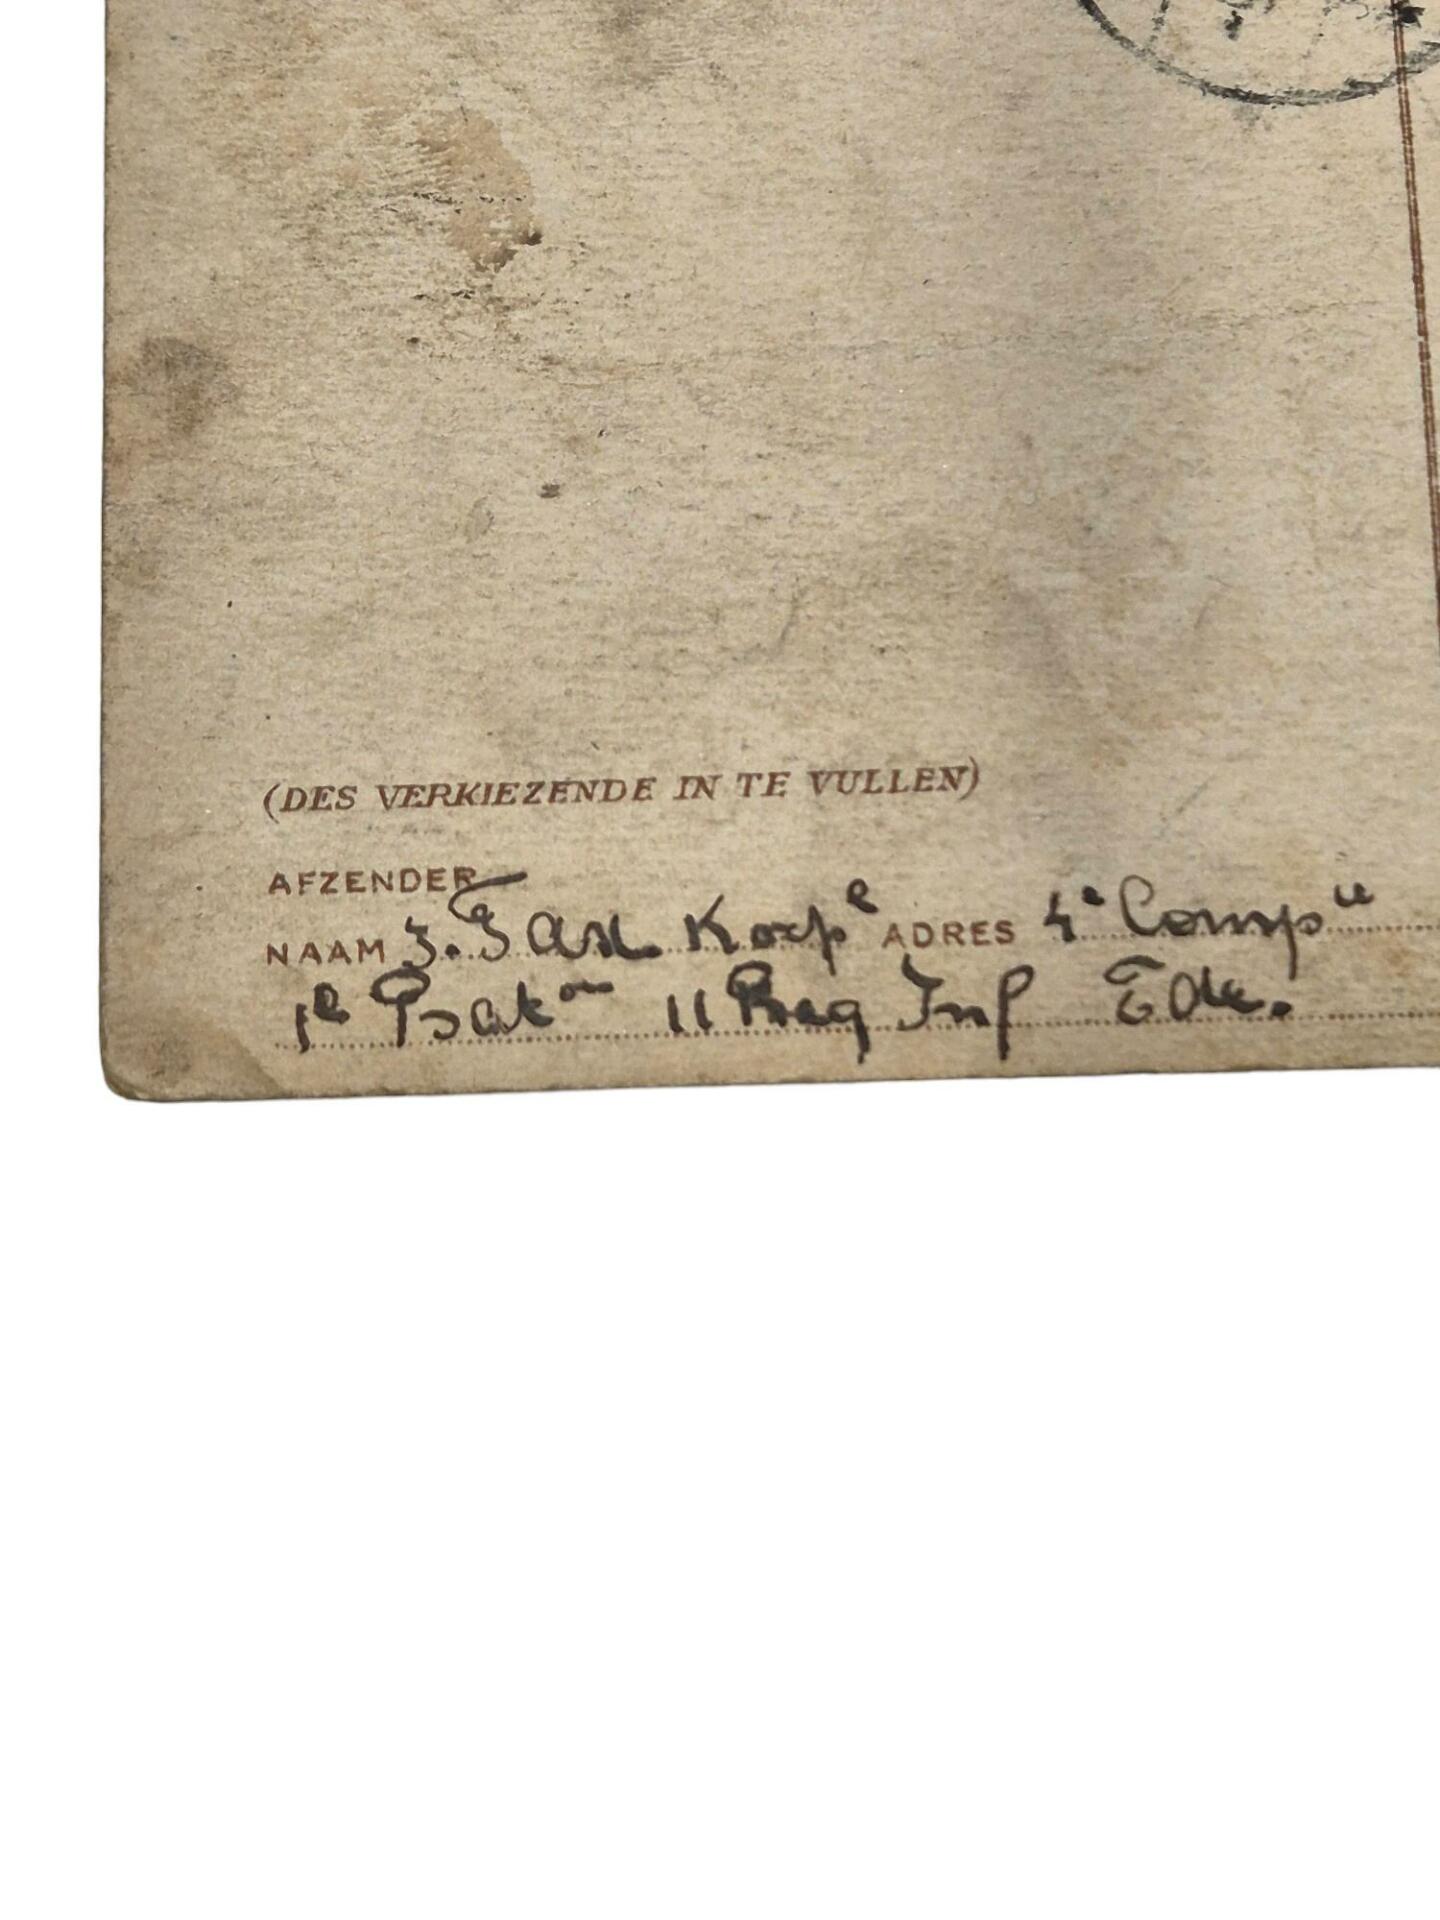 (DES VERKIEZENDE IN TE VULLEN)
AFZENDER
NAAM J. Korpl ADRES 4e Compie
1e Baton 11 Reg Inf Ede.